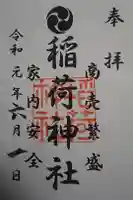 奉拝
商売繁盛
稲荷神社
家内安全
令和元年六月一日